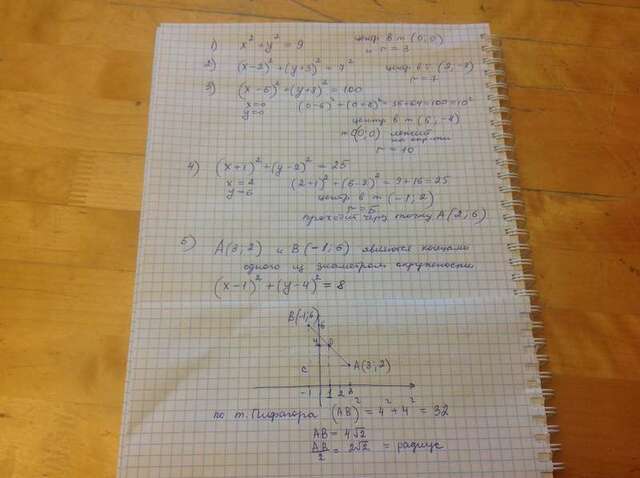 1) x² + y² = 9 центр в т (0;0)
и r = 3
2) (x-2)² + (y+3)² = 7² центр в т (2;-3)
r = 7
3) (x-6)² + (y+8)² = 100
x=0 (0-6)² + (0+8)² = 36+64=100=10²
y=0
центр в т (6;-8)
т (0;0) лежит
на окр-ти
r = 10
4) (x+1)² + (y-2)² = 25
x = 2 (2+1)² + (6-2)² = 9+16=25
y = 6
центр в т (-1;2)
r = 5
проходит через точку A(2;6)
5) A(3;2) и B(-1;6) являются концами
одного из диаметров окружности
(x-1)² + (y-4)² = 8
B(-1;6) 6
4
A(3;2)
C
-1 1 2 3
по т. Пифагора (AB)² = 4² + 4² = 32
AB = 4√2
AB/2 = 2√2 = радиус